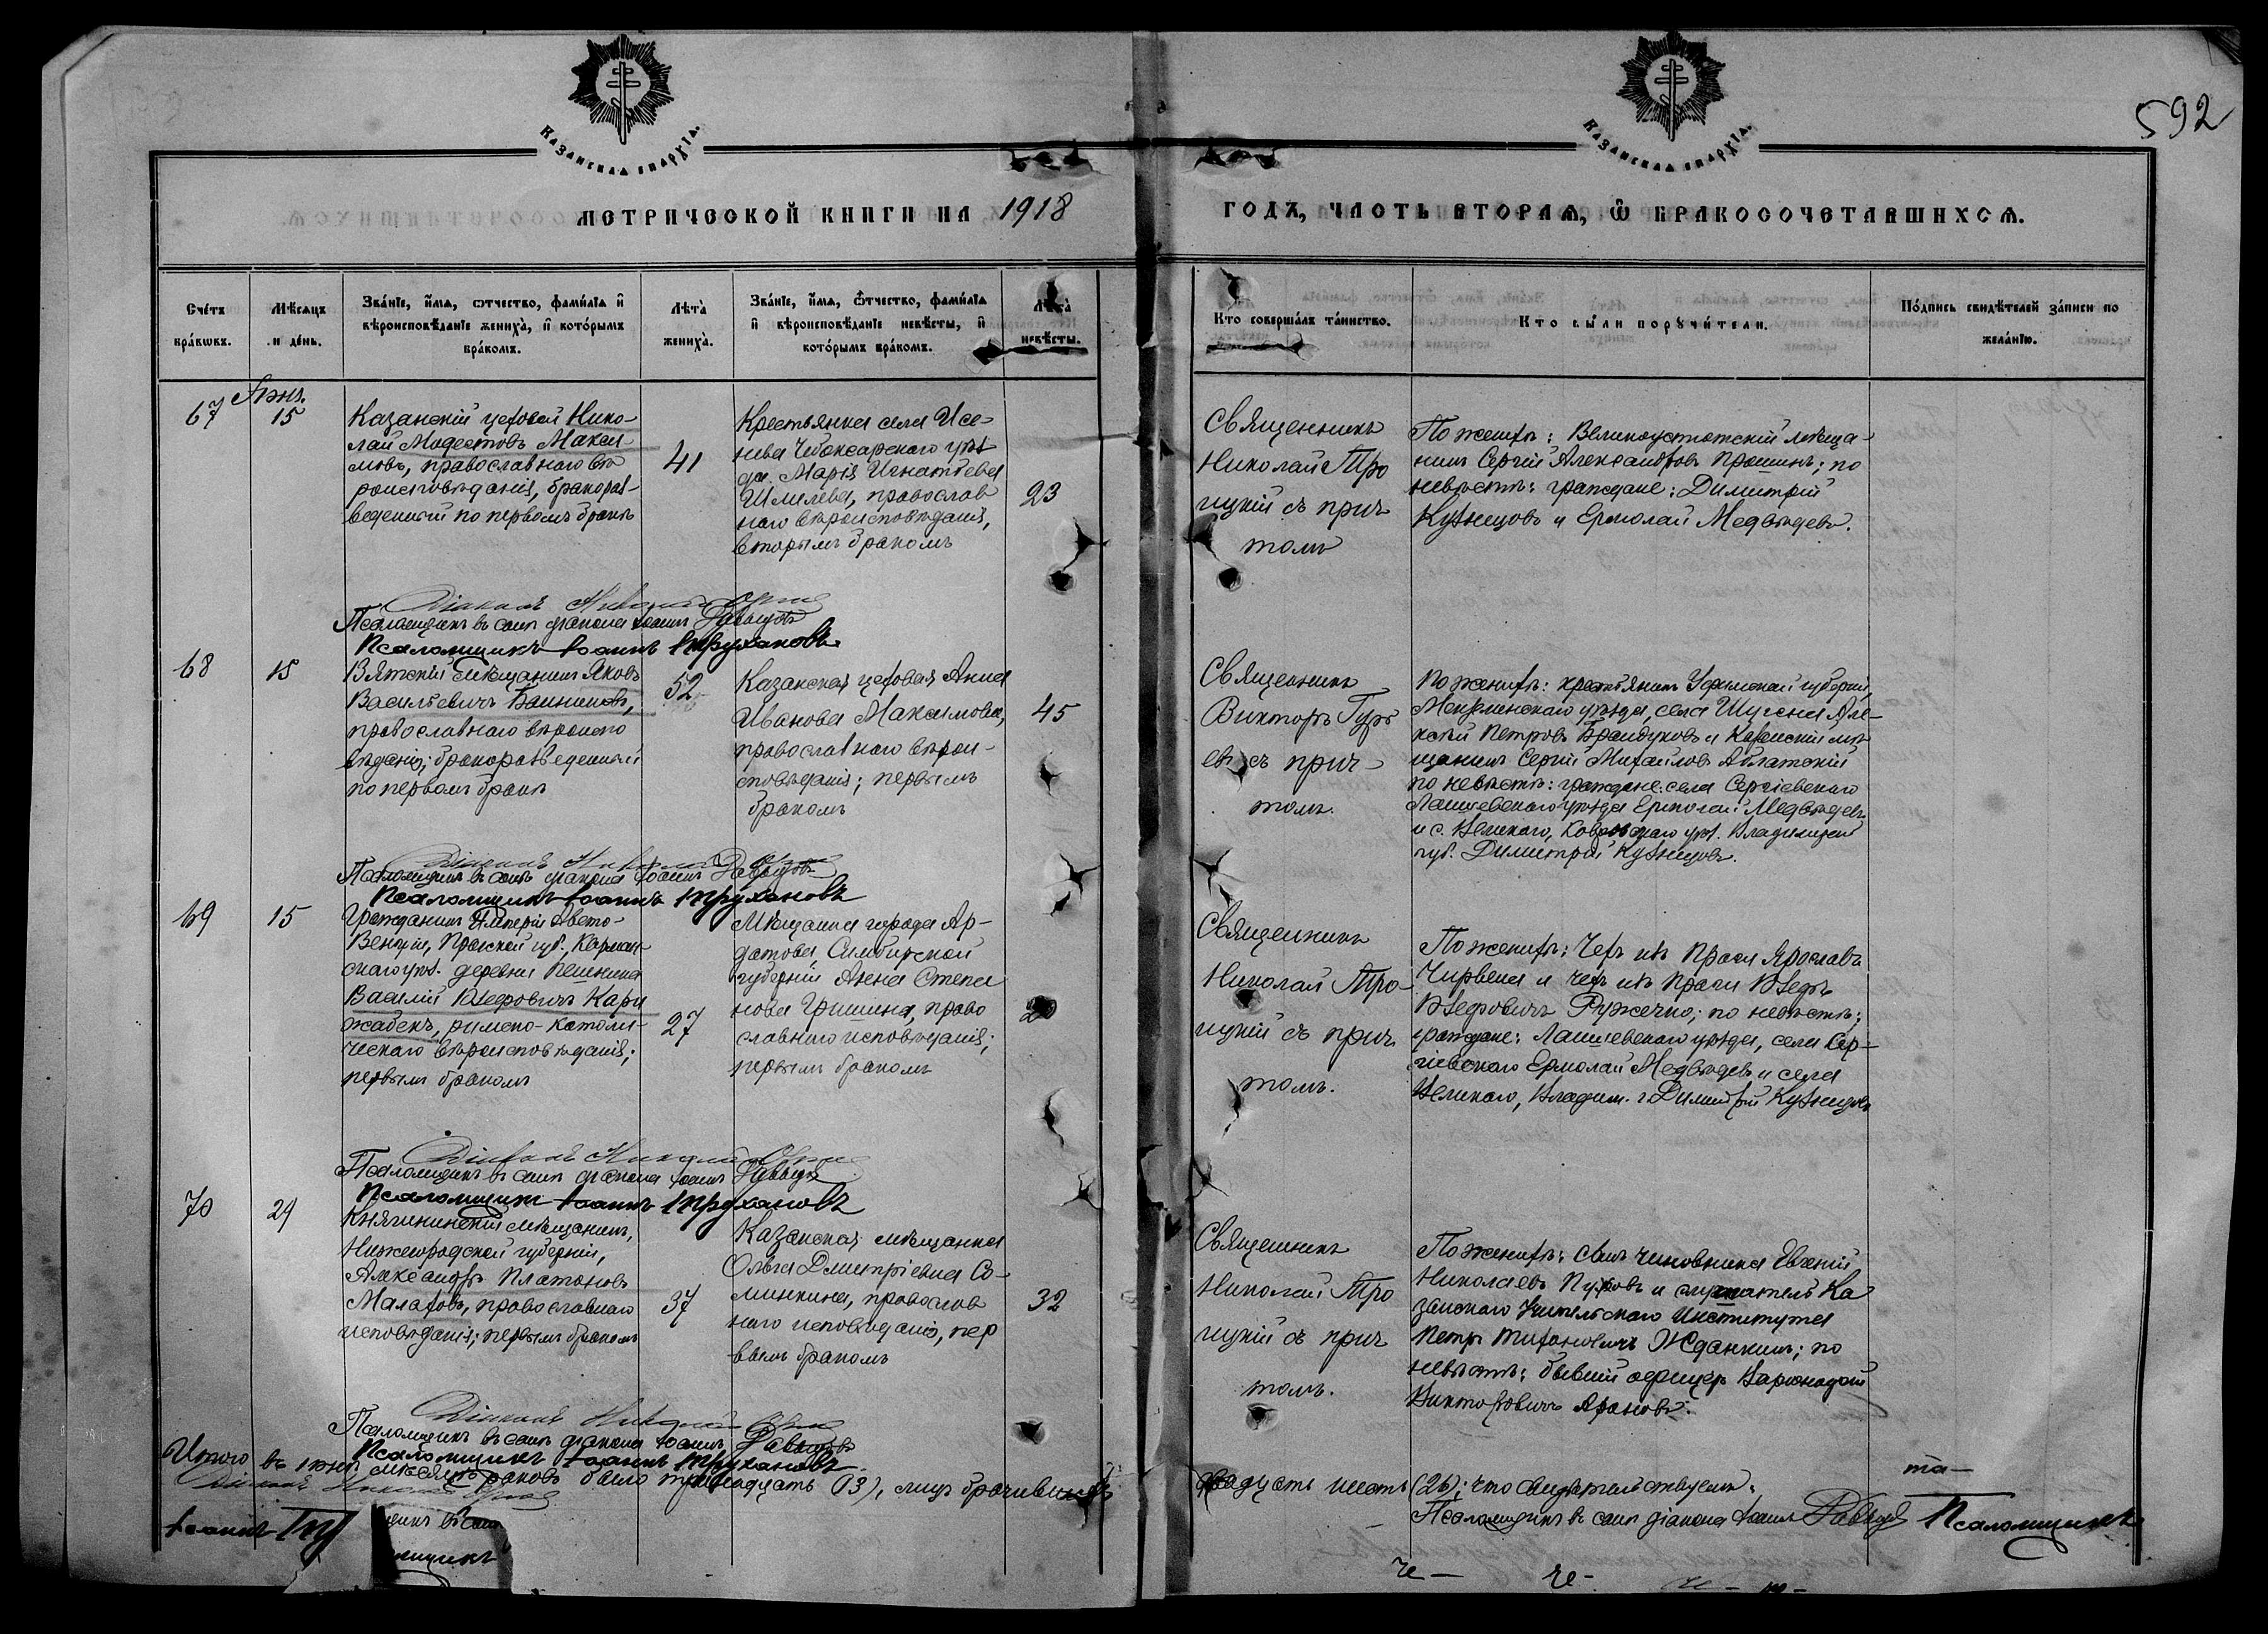 592
КАЗАНСКАѦ ЕПАРХІА.
КАЗАНСКАѦ ЕПАРХІА.
МЕТРИЧЕСКОЙ КНИГИ НА 1918
ГОДЪ, ЧАСТЬ ВТОРАѦ, Ѽ БРАКОСОЧЕТАВШИХСѦ.
Счетъ браковъ.
Мѣсяцъ и день.
Званіе, имя, отчество, фамилія и вѣроисповѣданіе жениха, и которымъ бракомъ.
Лѣта жениха.
Званіе, имя, отчество, фамилія и вѣроисповѣданіе невѣсты, и которымъ бракомъ.
Лѣта невѣсты.
Кто совершалъ таинство.
Кто были поручители.
Подпись свидѣтелей записи по желанію.
Іюнь.
67
15
Казанскій цеховой Нико-
лай Модестовъ Макси
мовъ, православнаго вѣ
роисповѣданія, бракораз-
веденный по первомъ бракѣ
41
Крестьянка села Исе-
нева Чебоксарскаго уѣз
да Марія Игнатьева
Шмелева, православ
наго вѣроисповѣданія,
вторымъ бракомъ
23
Священникъ
Николай Тро
ицкій съ прич
томъ
По женихѣ: Великоустюгскій мѣща-
нинъ Сергій Александровъ Прошинъ; по
невѣстѣ: граждане: Димитрій
Кузнецовъ и Ермолай Медвѣдевъ.
Діаконъ Николай
Псаломщикъ въ санѣ діакона Іоаннъ
Псаломщикъ Іоаннъ Трухановъ
68
15
Вятскій мѣщанинъ Яковъ
Васильевичъ Банниковъ,
православнаго вѣроиспо
вѣданія; бракоразведенный
по первомъ бракѣ
52
Казанская цеховая Анна
Иванова Максимова,
православнаго вѣрои-
сповѣданія; первымъ
бракомъ
45
Священникъ
Викторъ Гурь
евъ съ прич
томъ.
По женихѣ: крестьянинъ Уфимской губерніи,
Мензелинскаго уѣзда, села Шугана Але-
ксѣй Петровъ Брандуковъ и Казанскій мѣ-
щанинъ Сергій Михайловъ Аблатскій
по невѣстѣ: граждане: села Сергіевскаго
Лаишевскаго уѣзда Ермолай Медвѣдевъ
и с. Великаго, Ковровскаго уѣз. Владимірской
губ. Димитрій Кузнецовъ.
Діаконъ Николай
Псаломщикъ въ санѣ діакона Іоаннъ
Псаломщикъ Іоаннъ Трухановъ
69
15
Гражданинъ Имперіи Австо-
Венгріи, Пражской губ.
скаго уѣз. деревни
Василій Вячеровичъ
римско-католи-
ческаго вѣроисповѣданія;
первымъ бракомъ
27
Мѣщанка города Ар-
датова, Симбирской
губерніи Анна Степа
нова Гришина, право
славнаго исповѣданія;
первымъ бракомъ
20
Священникъ
Николай Тро-
ицкій съ прич
томъ.
По женихѣ: Чехъ изъ Праги Ярославъ
Чирвена и чехъ изъ Праги
Ружечко; по невѣстѣ:
граждане: Лаишевскаго уѣзда, села Сер-
гіевскаго Ермолай Медвѣдевъ и села
Великаго, Владим. г. Димитрій Кузнецовъ
Діаконъ Николай
Псаломщикъ въ санѣ діакона Іоаннъ
Псаломщикъ Іоаннъ Трухановъ
70
29
Княгининскій мѣщанинъ,
Нижегородской губерніи,
Александръ Платоновъ
Малаховъ, православнаго
исповѣданія; первымъ бракомъ
37
Казанская мѣщанка
Ольга Дмитріевна Со-
минкина, православ
наго исповѣданія, пер
вымъ бракомъ
32
Священникъ
Николай Тро
ицкій съ прич
томъ.
По женихѣ: сынъ чиновника Евгеній
Николаевъ Пуховъ и слушатель Ка
занскаго Учительскаго Института
Петръ Тихоновичъ Жданкинъ; по
невѣстѣ: бывшій офицеръ
Викторовичъ Афановъ.
Діаконъ Николай
Псаломщикъ въ санѣ діакона Іоаннъ
Псаломщикъ Іоаннъ Трухановъ
Итого въ іюнѣ мѣсяцѣ браковъ было тринадцать (13), лицъ брачившихся
двадцать шесть (26); что свидѣтельствуемъ:
Діаконъ Николай
Псаломщикъ въ санѣ діакона Іоаннъ
та-
Псаломщикъ
Іоаннъ Тру
че-
че-